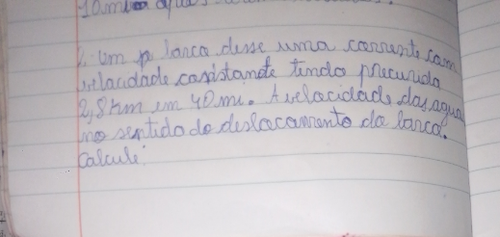 10min
2. Um p barco desse uma corrente com
velocidade constante tendo precurido
2,8 km em 40 mi. A velocidade das agua
no sentido do deslocamento do barco.
calculé: